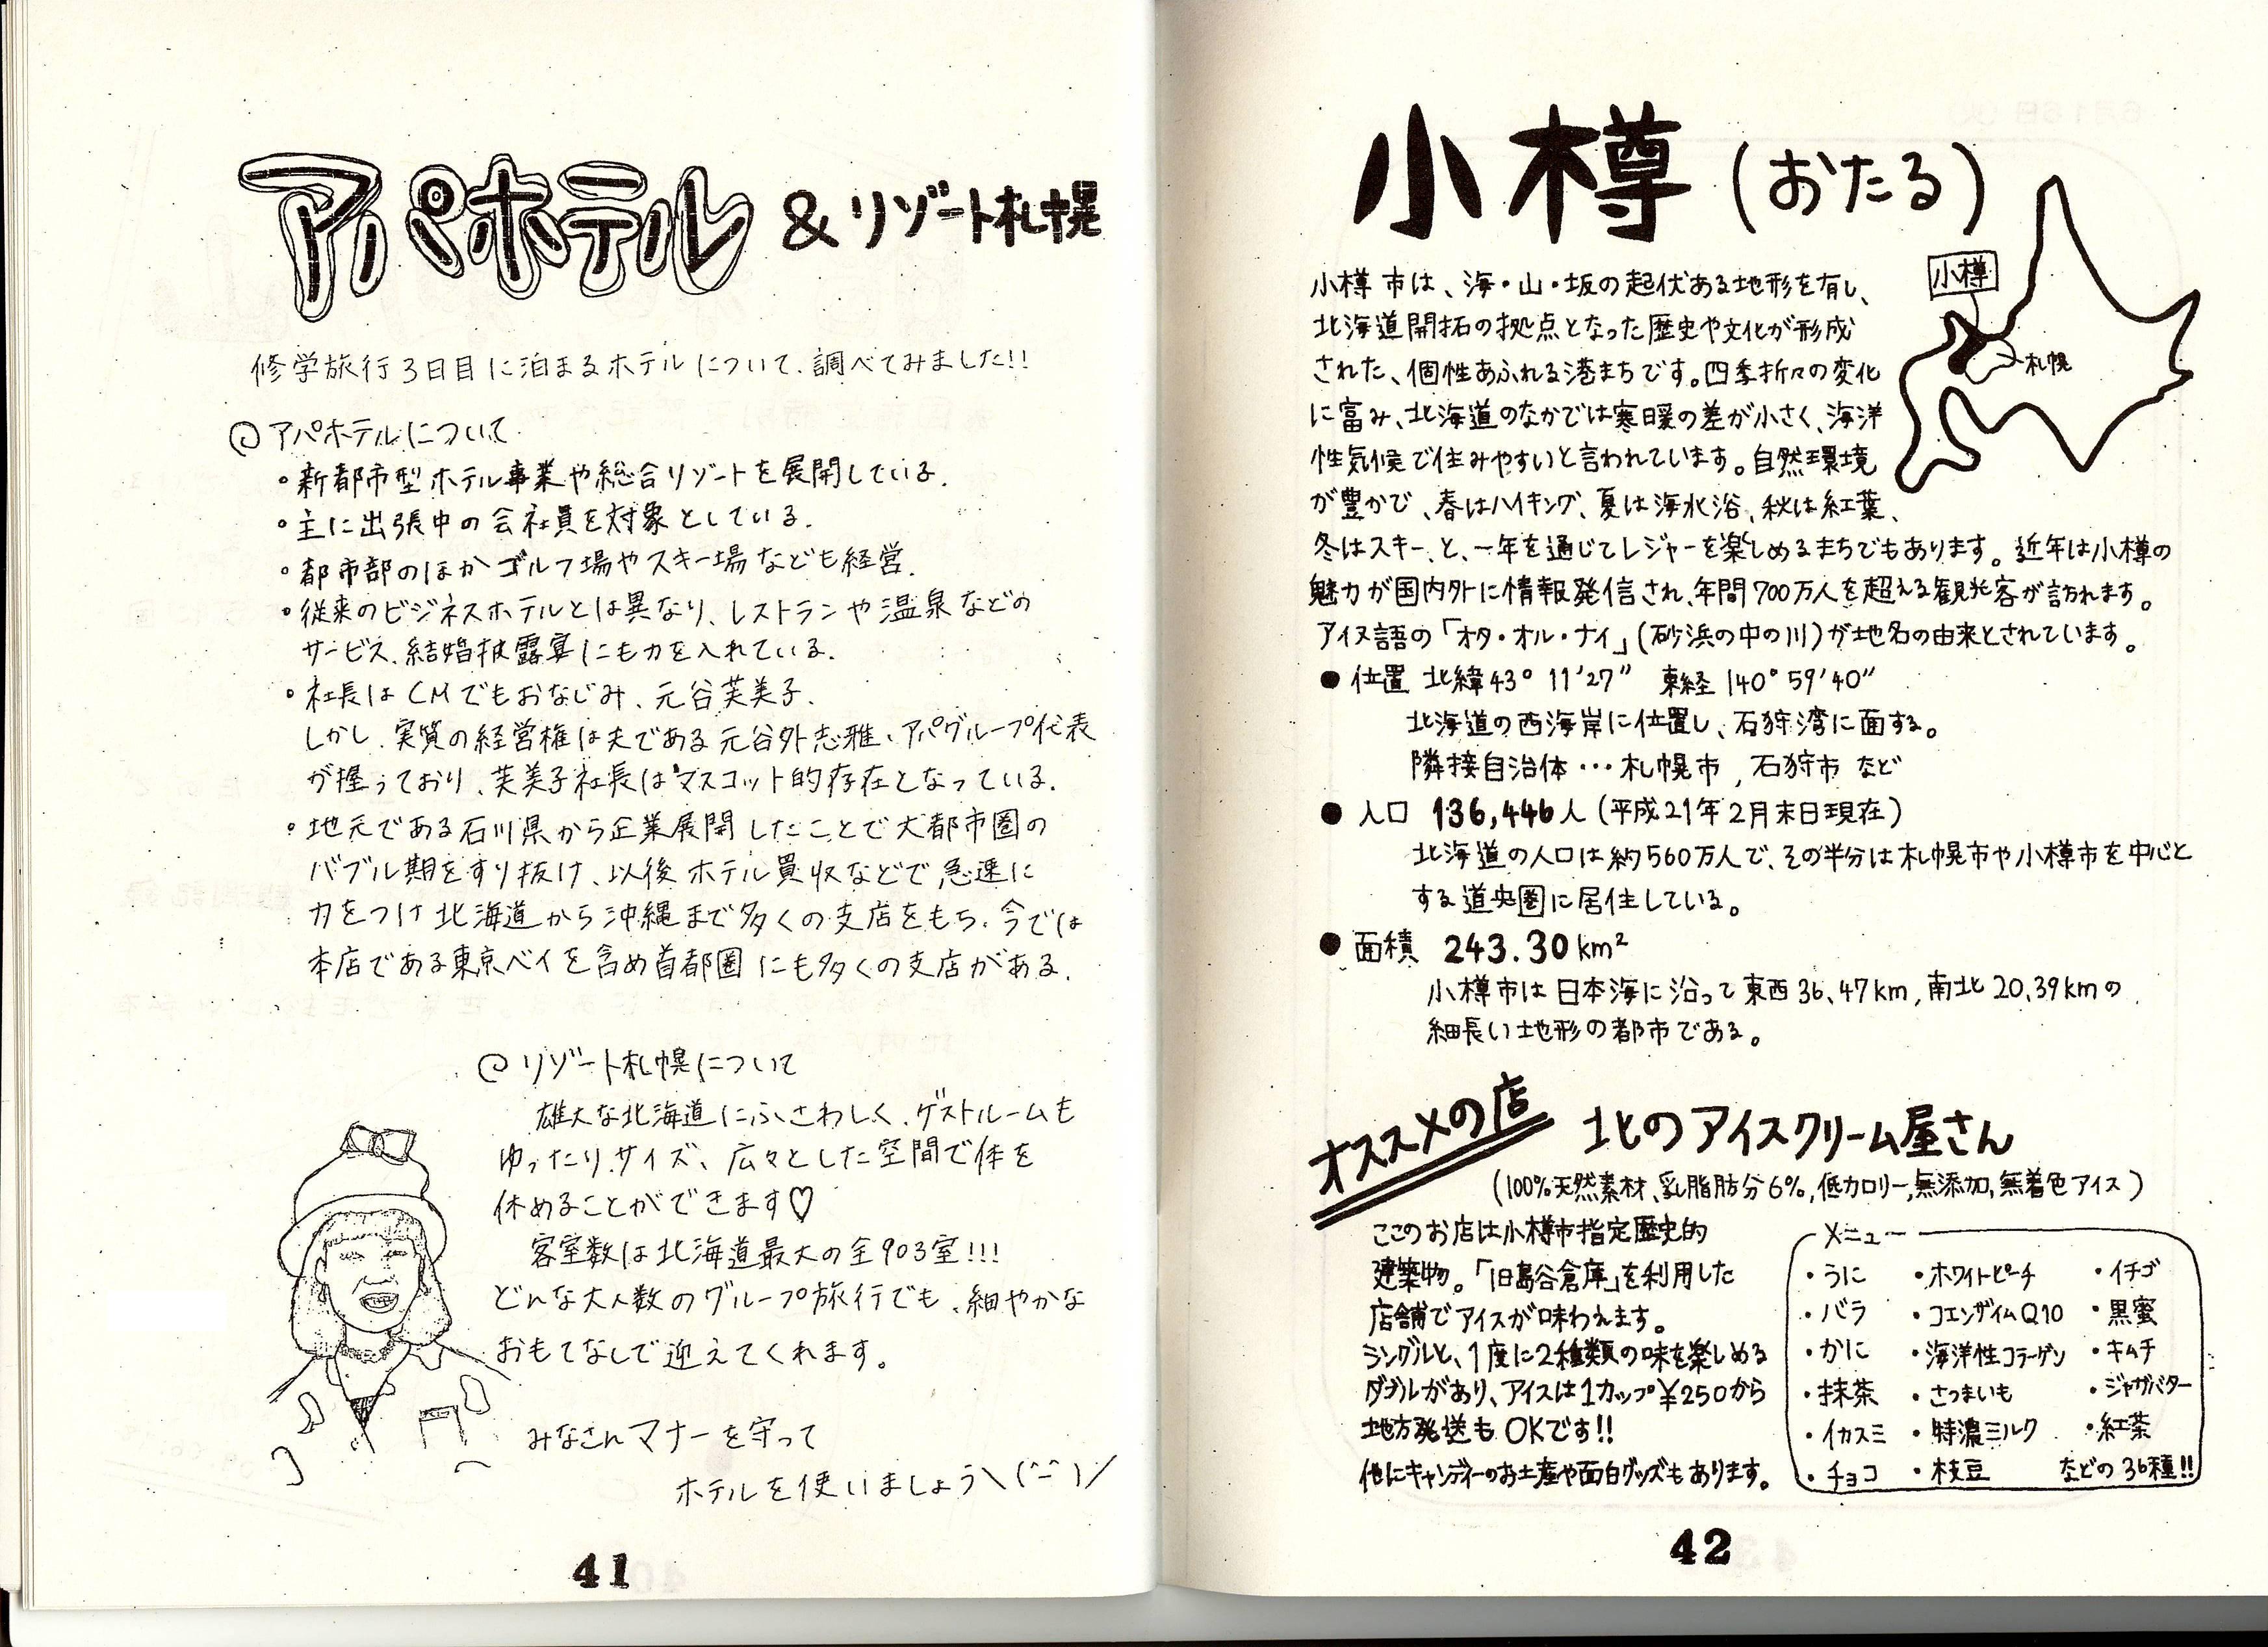 アパホテル & リゾート札幌
修学旅行3日目に泊まるホテルについて、調べてみました!!
アパホテルについて
・新都市型ホテル事業や総合リゾートを展開している.
・主に出張中の会社員を対象としている.
・都市部のほかゴルフ場やスキー場なども経営.
・従来のビジネスホテルとは異なり、レストランや温泉などの
サービス、結婚披露宴にも力を入れている.
・社長はCMでもおなじみ、元谷芙美子.
しかし、実質の経営権は夫である元谷外志雄、アパグループ代表
が握っており、芙美子社長はマスコット的存在となっている.
・地元である石川県から企業展開したことで大都市圏の
バブル期をすり抜け、以後ホテル買収などで、急速に
力をつけ北海道から沖縄まで多くの支店をもち、今では
本店である東京ベイを含め首都圏にも多くの支店がある.
リゾート札幌について
雄大な北海道にふさわしく、ゲストルームも
ゆったりサイズ、広々とした空間で体を
休めることができます♡
客室数は北海道最大の全903室!!!
どんな大人数のグループ旅行でも、細やかな
おもてなしで迎えてくれます。
みなさんマナーを守って
ホテルを使いましょう\(^-^)/
41
小樽(おたる)
小樽
札幌
小樽市は、海・山・坂の起伏ある地形を有し、
北海道開拓の拠点となった歴史や文化が形成
された、個性あふれる港まちです。四季折々の変化
に富み、北海道のなかでは寒暖の差が小さく、海洋
性気候で住みやすいと言われています。自然環境
が豊かで、春はハイキング、夏は海水浴、秋は紅葉、
冬はスキー、と、一年を通じてレジャーを楽しめるまちでもあります。近年は小樽の
魅力が国内外に情報発信され、年間700万人を超える観光客が訪れます。
アイヌ語の「オタ・オル・ナイ」(砂浜の中の川)が地名の由来とされています。
● 位置 北緯43° 11'27" 東経140° 59'40"
北海道の西海岸に位置し、石狩湾に面する。
隣接自治体…札幌市, 石狩市 など
● 人口 136,446人(平成21年2月末日現在)
北海道の人口は約560万人で、その半分は札幌市や小樽市を中心と
する道央圏に居住している。
● 面積 243.30km²
小樽市は日本海に沿って東西36.47km, 南北20.39kmの
細長い地形の都市である。
オススメの店 北のアイスクリーム屋さん
(100%天然素材、乳脂肪分6%, 低カロリー, 無添加, 無着色アイス)
ここのお店は小樽市指定歴史的
建築物。「旧島谷倉庫」を利用した
店舗でアイスが味わえます。
シングルと、1度に2種類の味を楽しめる
ダブルがあり、アイスは1カップ¥250から
地方発送もOKです!!
他にキャンディーのお土産や面白グッズもあります。
メニュー
・うに ・ホワイトピーチ ・イチゴ
・バラ ・コエンザイムQ10 ・黒蜜
・かに ・海洋性コラーゲン ・キムチ
・抹茶 ・さつまいも ・ジャガバター
・イカスミ ・特濃ミルク ・紅茶
・チョコ ・枝豆 などの36種!!
42